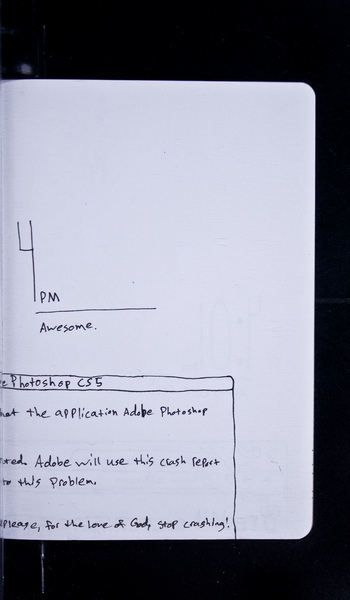 4
PM
Awesome.
Photoshop CS5
the application Adobe Photoshop
Adobe will use this crash report
to this problem.
please, for the love of God, stop crashing!